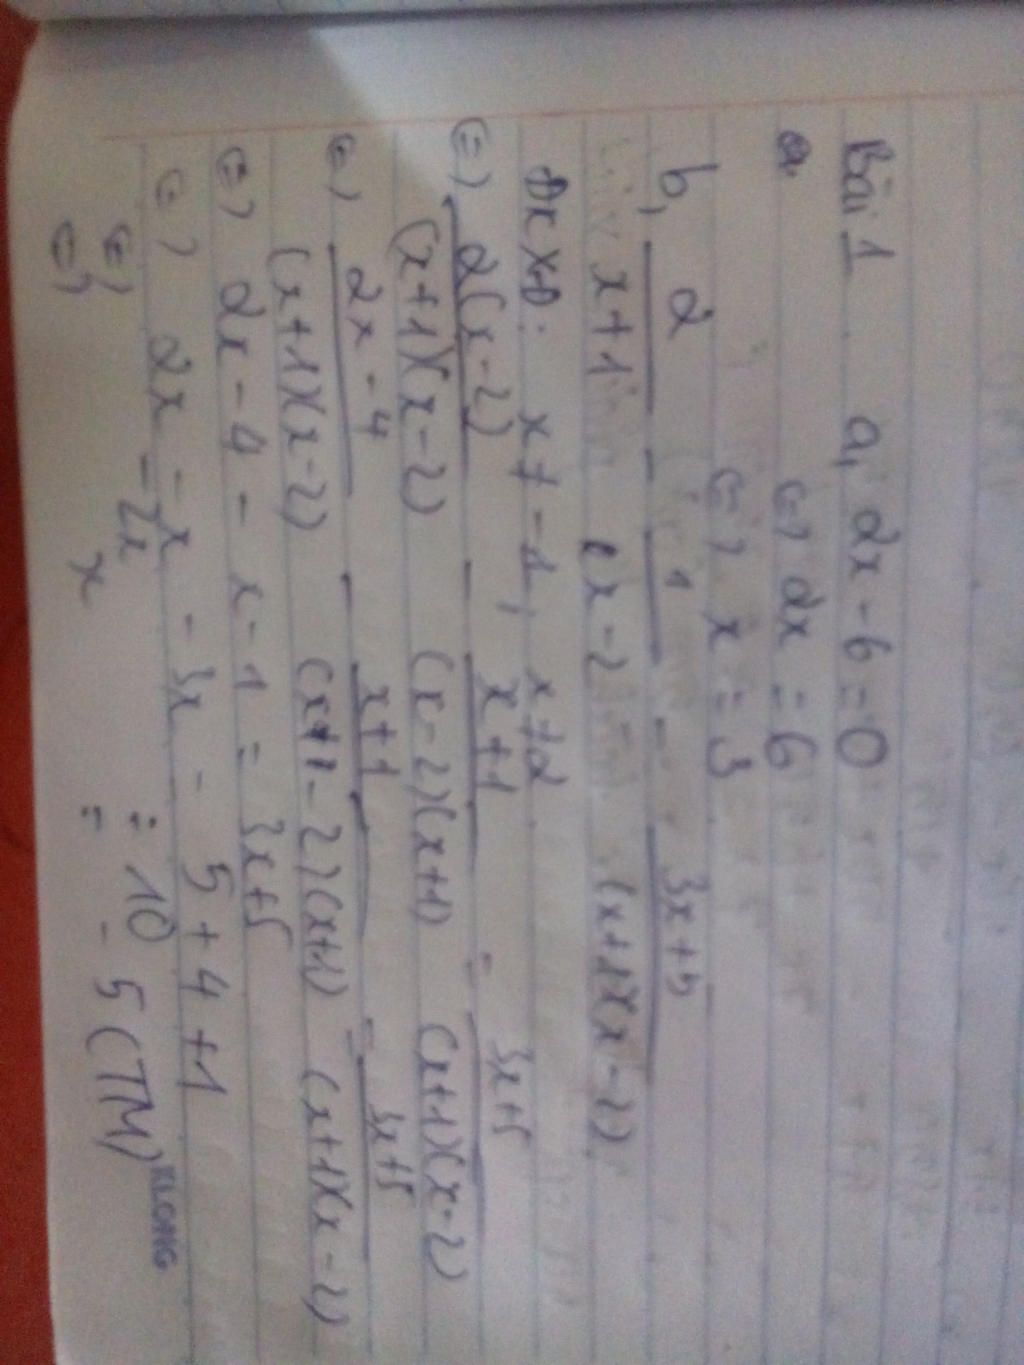 Bài 1 a, 2x - 6 = 0
a
<=> 2x = 6
<=> x = 3
b, 2/(x+1) - 1/(x-2) = (3x+5)/((x+1)(x-2))
ĐKXĐ: x ≠ -1, x ≠ 2
<=> 2(x-2)/((x+1)(x-2)) - (x+1)/((x-2)(x+1)) = (3x+5)/((x+1)(x-2))
<=> (2x-4)/((x+1)(x-2)) - (x+1)/((x-2)(x+1)) = (3x+5)/((x+1)(x-2))
<=> 2x - 4 - x - 1 = 3x+5
<=> 2x - x - 3x = 5 + 4 + 1
<=> -2x = 10
<=> x = -5 (TM)
KLONG